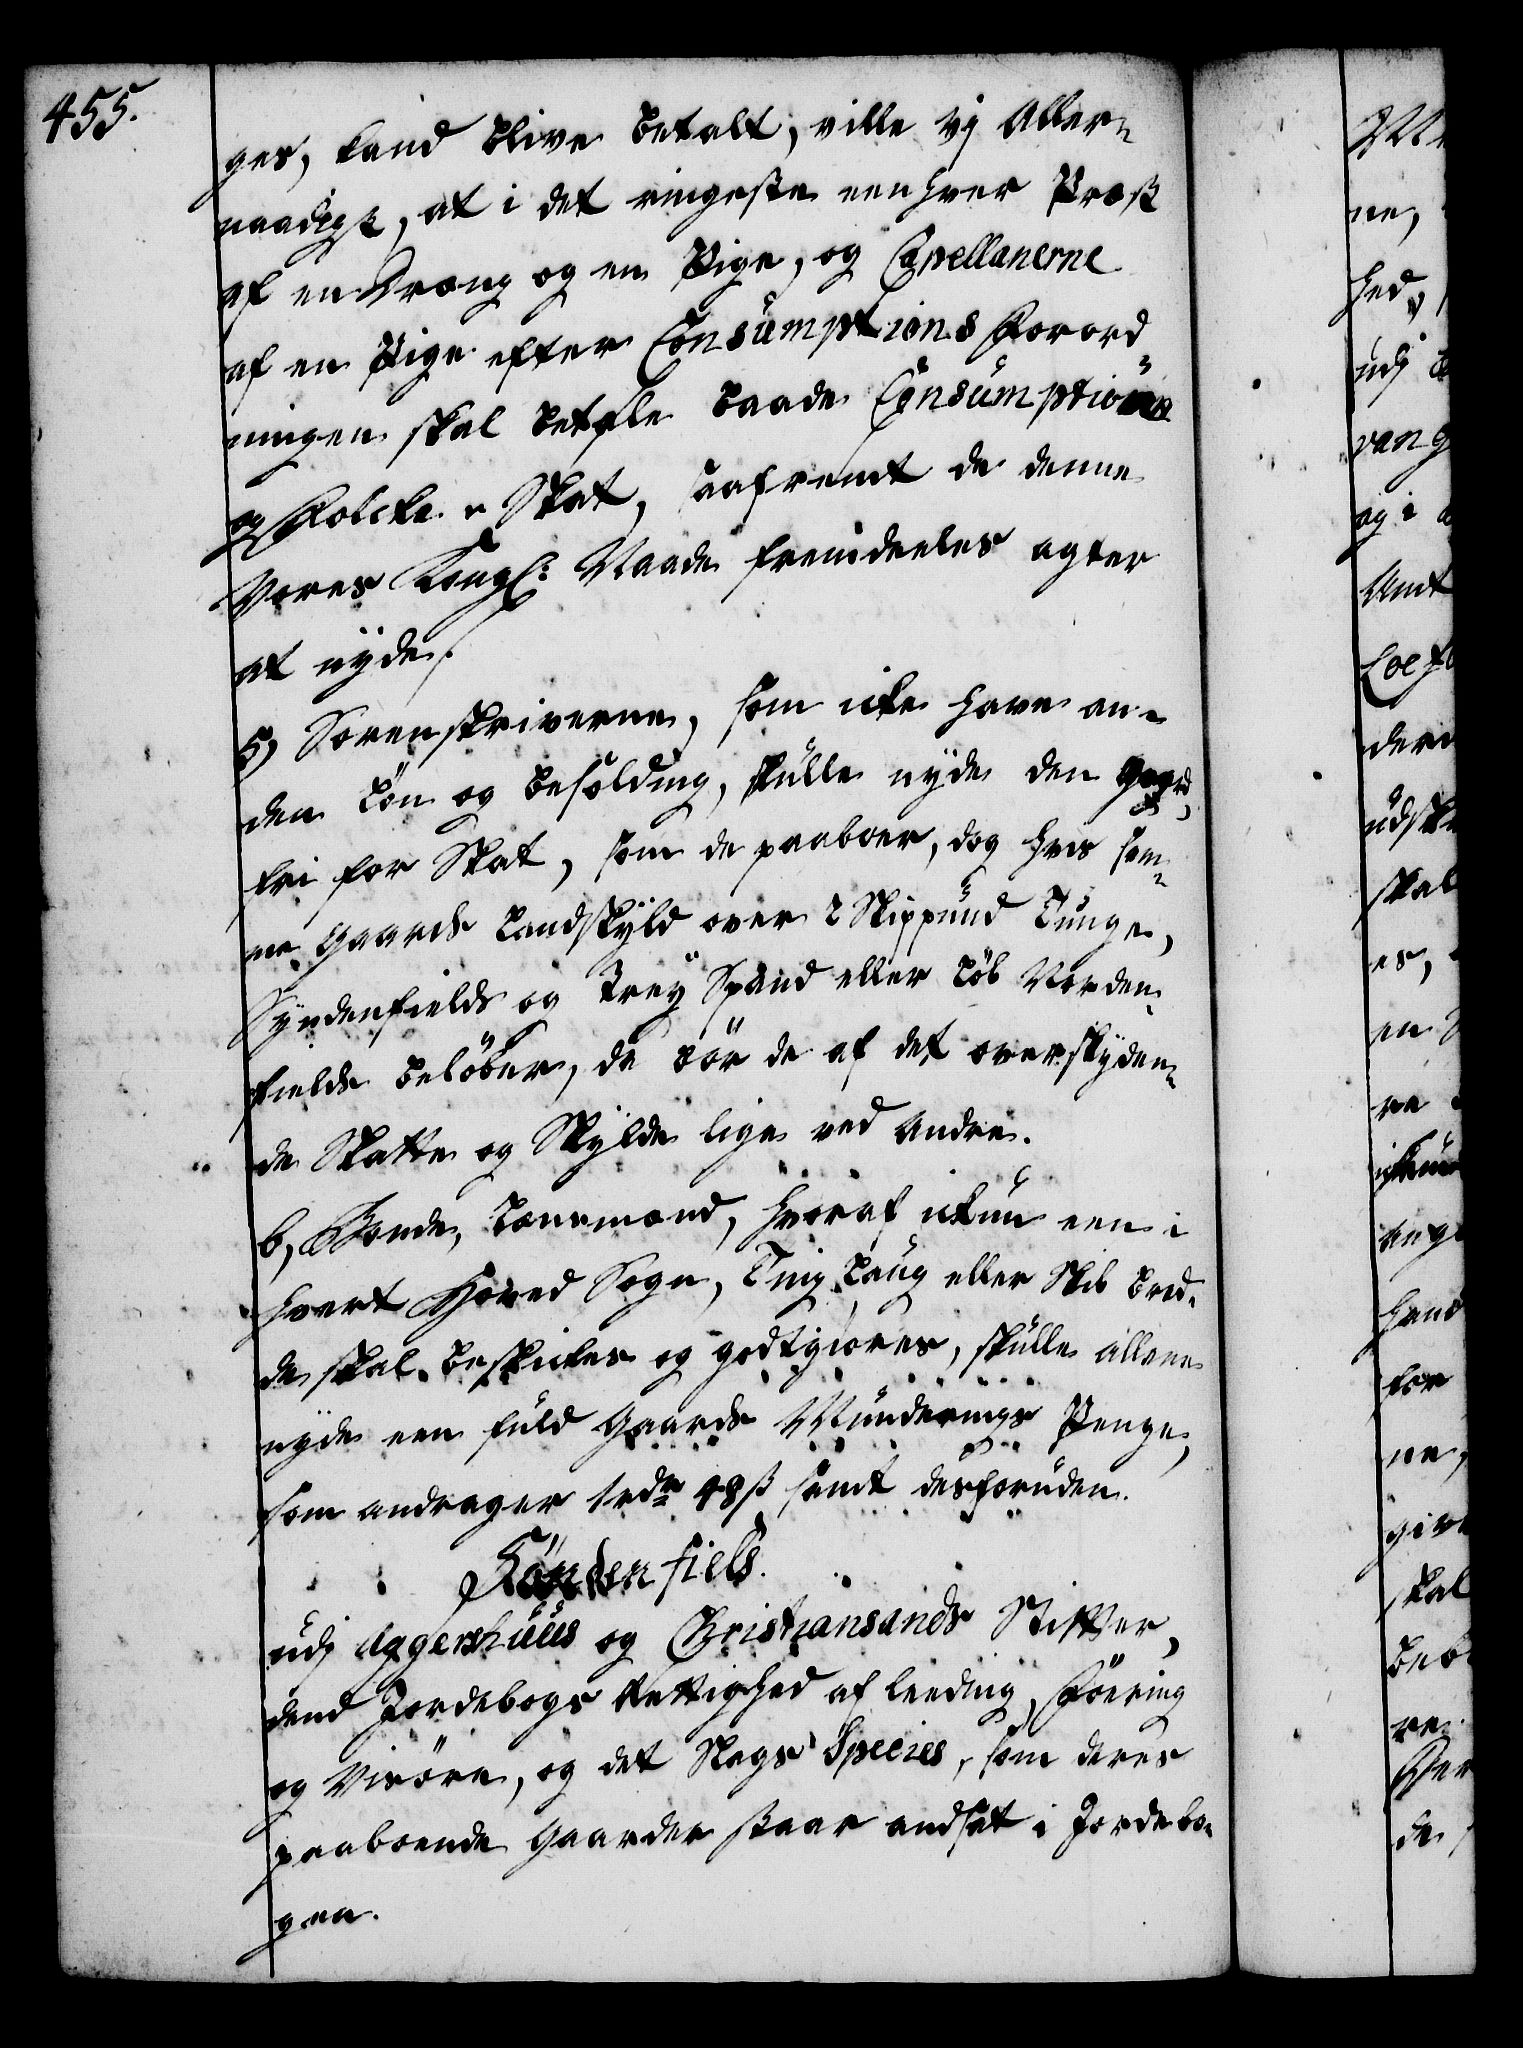 455.
ges, kand blive betalt, ville vj Aller-
naadigst, at i det ringeste een hver Præst
af en Dreng og en Pige, og Capellanerne
af en Pige efter Consumptions Forord-
ningen skal betale baade Consumption
og Folcke-Skat, saafremt de denne
Vores Kongl: Naade fremdeeles agter
at nyde.
5, Sorenskriverne, som icke have an-
den Løn og besolding, skulle nyde den Gaard,
fri for Skat, som de paaboer, dog hvis sam-
me Gaards Landskyld over 2 Skippund Tunge,
Syndenfields og Trey Spand eller Løb Norden-
fields beløber, da bør de af det overskyden-
de Skatte og Skylde lige ved Andre.
6, Bonde, Lænsmænd, hvoraf ickun een i
hvert Hoved Sogn, Ting Laug eller Skib Red-
de skal beskickes og godtgiøres, skulle allene
nyde een fuld Gaards Munderings Penge,
som andrager 1 rdr 48 ß samt desforuden.
Sønden fields.
udj Aggershuus og Christiansands Stifter,
dend Jordebogs Rettighed af Leeding, Foering
og Visøre, og det Slags Species, som deres
paaboende Gaarder staar andsat i Jordebo-
gen.
ne,
hed,
udj
og i
Amt
skal
en
for
ne,
skal
de